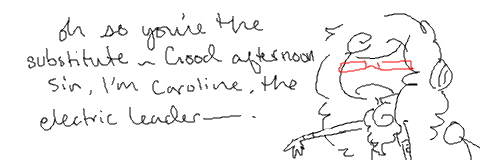 oh so you're the
substitute ~ Good afternoon
Sir, I'm Caroline, the
electric leader—.